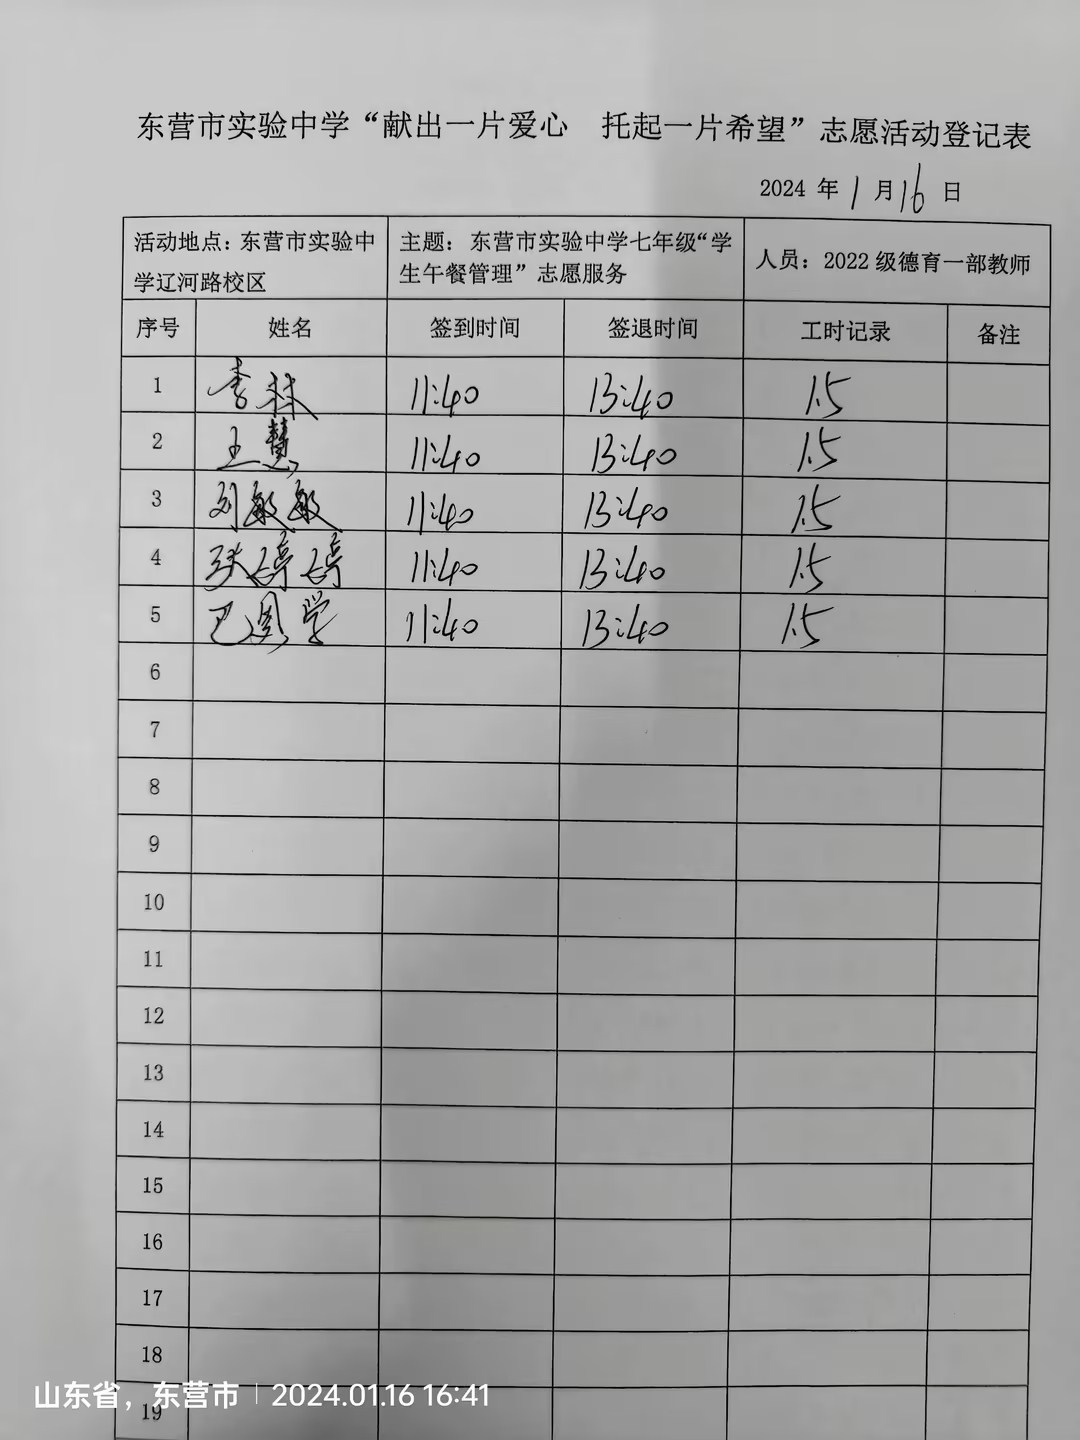 东营市实验中学“献出一片爱心 托起一片希望”志愿活动登记表
2024 年 1 月 16 日
活动地点：东营市实验中学辽河路校区 主题：东营市实验中学七年级“学生午餐管理”志愿服务 人员：2022 级德育一部教师
序号 姓名 签到时间 签退时间 工时记录 备注
1 李林 11:40 13:40 1.5
2 王慧 11:40 13:40 1.5
3 刘敏敏 11:40 13:40 1.5
4 张婷婷 11:40 13:40 1.5
5 巴学 11:40 13:40 1.5
6
7
8
9
10
11
12
13
14
15
16
17
18
山东省，东营市 2024.01.16 16:41
19